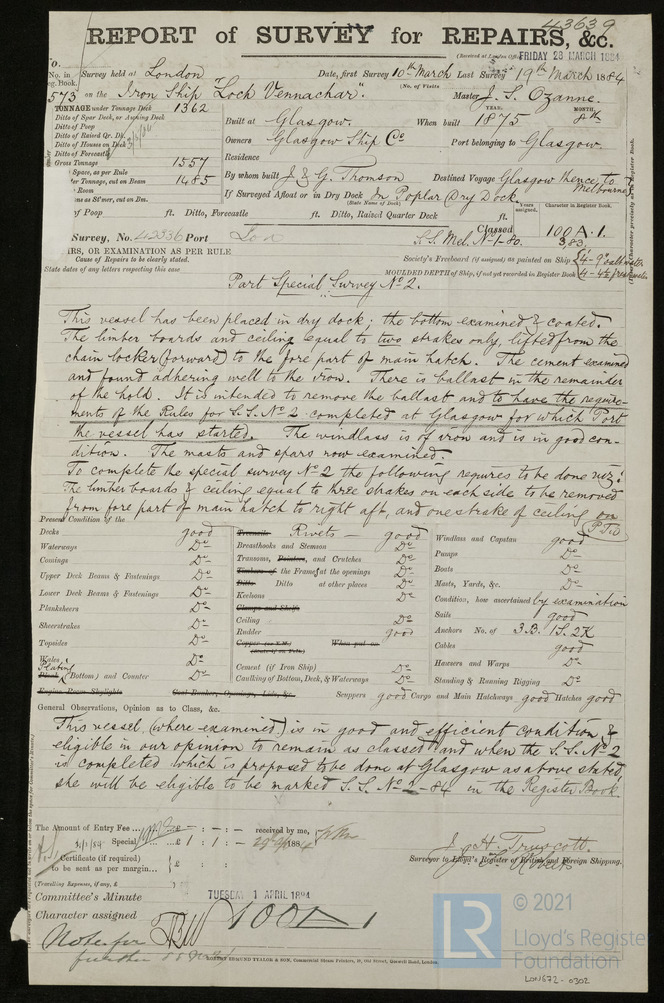 43639
REPORT of SURVEY for REPAIRS, &c.
FRIDAY 28 MARCH 1884
No. in Reg. Book. Survey held at London Date, first Survey 10th March Last Survey 19th March 1884
(No. of Visits
573 on the Iron Ship "Loch Vennachar". Master J. S. Ozanne.
TONNAGE under Tonnage Deck 1362
Ditto of Spar Deck, or Awning Deck
Ditto of Poop
Ditto of Raised Qr. Dk.
Ditto of Houses on Deck
Ditto of Forecastle
Gross Tonnage 1557
Space, as per Rule
Tonnage, cut on Beam 1485
Room
cut on Bm.
Built at Glasgow. When built YEAR. 1875 MONTH. 8th
Owners Glasgow Ship Co Port belonging to Glasgow.
Residence
By whom built J. & G. Thomson Destined Voyage Glasgow thence to Melbourne
If Surveyed Afloat or in Dry Dock In Poplar Dry Dock.
(State Name of Dock)
of Poop ft. Ditto, Forecastle ft. Ditto, Raised Quarter Deck ft.
Years assigned. Character in Register Book.
Classed 100 A.1.
Survey, No. 42336 Port Lon S.S. Mel. No 1-80. 3,83,
IRS, OR EXAMINATION AS PER RULE
Cause of Repairs to be clearly stated.
State dates of any letters respecting this case
Society's Freeboard (if assigned) as painted on Ship
MOULDED DEPTH of Ship, if not yet recorded in Register Book
Part Special Survey No 2.
This vessel has been placed in dry dock; the bottom examined & coated.
The limber boards and ceiling equal to two strakes only, lifted from the
chain locker (forward) to the fore part of main hatch. The cement examined
and found adhering well to the iron. There is ballast in the remainder
of the hold. It is intended to remove the ballast and to have the require-
ments of the Rules for S.S. No 2 completed at Glasgow for which Port
the vessel has started. The windlass is of iron and is in good con-
dition. The masts and spars now examined.
To complete the special survey No 2 the following requires to be done viz:
The limber boards & ceiling equal to three strakes on each side to be removed
from fore part of main hatch to right aft, and one strake of ceiling on
P.T.O
Present Condition of the
Decks good
Waterways Do
Comings Do
Upper Deck Beams & Fastenings Do
Lower Deck Beams & Fastenings Do
Planksheers Do
Sheerstrakes Do
Topsides Do
Wales Do
Plating (Bottom) and Counter Do
Engine Room Skylights
Treenails Rivets good
Breasthooks and Stemson Do
Transoms, Pointers, and Crutches Do
Timbers of the Frame at the openings Do
Ditto Ditto at other places Do
Keelsons Do
Clamps and Shelfs
Ceiling Do
Rudder good
Copper When put on
Cement (if Iron Ship) Do
Caulking of Bottom, Deck, & Waterways Do
Coal Bunkers, Openings, Lids, &c.
Scuppers good Cargo and Main Hatchways good Hatches good
Windlass and Capstan good
Pumps Do
Boats Do
Masts, Yards, &c. Do
Condition, how ascertained by examination
Sails good
Anchors No. of 3 B. 1 S. 2 K
Cables good
Hawsers and Warps Do
Standing & Running Rigging Do
General Observations, Opinion as to Class, &c.
This vessel (where examined) is in good and efficient condition &
eligible in our opinion to remain as classed and when the S.S. No 2
is completed which is proposed to be done at Glasgow as above stated,
she will be eligible to be marked S.S. No 2-84 in the Register Book.
The Amount of Entry Fee ... £ : - : - received by me,
Special ... £ 1 : 1 : - 188
Certificate (if required)
to be sent as per margin...
(Travelling Expenses, if any, £
J. H. Truscott.
Surveyor to Lloyd's Register of British and Foreign Shipping.
Committee's Minute TUESDAY 1 APRIL 1884
Character assigned 100 A 1
Note for
further SS
ROBERT EDMUND TAYLOR & SON, Commercial Steam Printers, 19, Old Street, Goswell Road, London.
LR
© 2021
Lloyd's Register
Foundation
LON672-0302